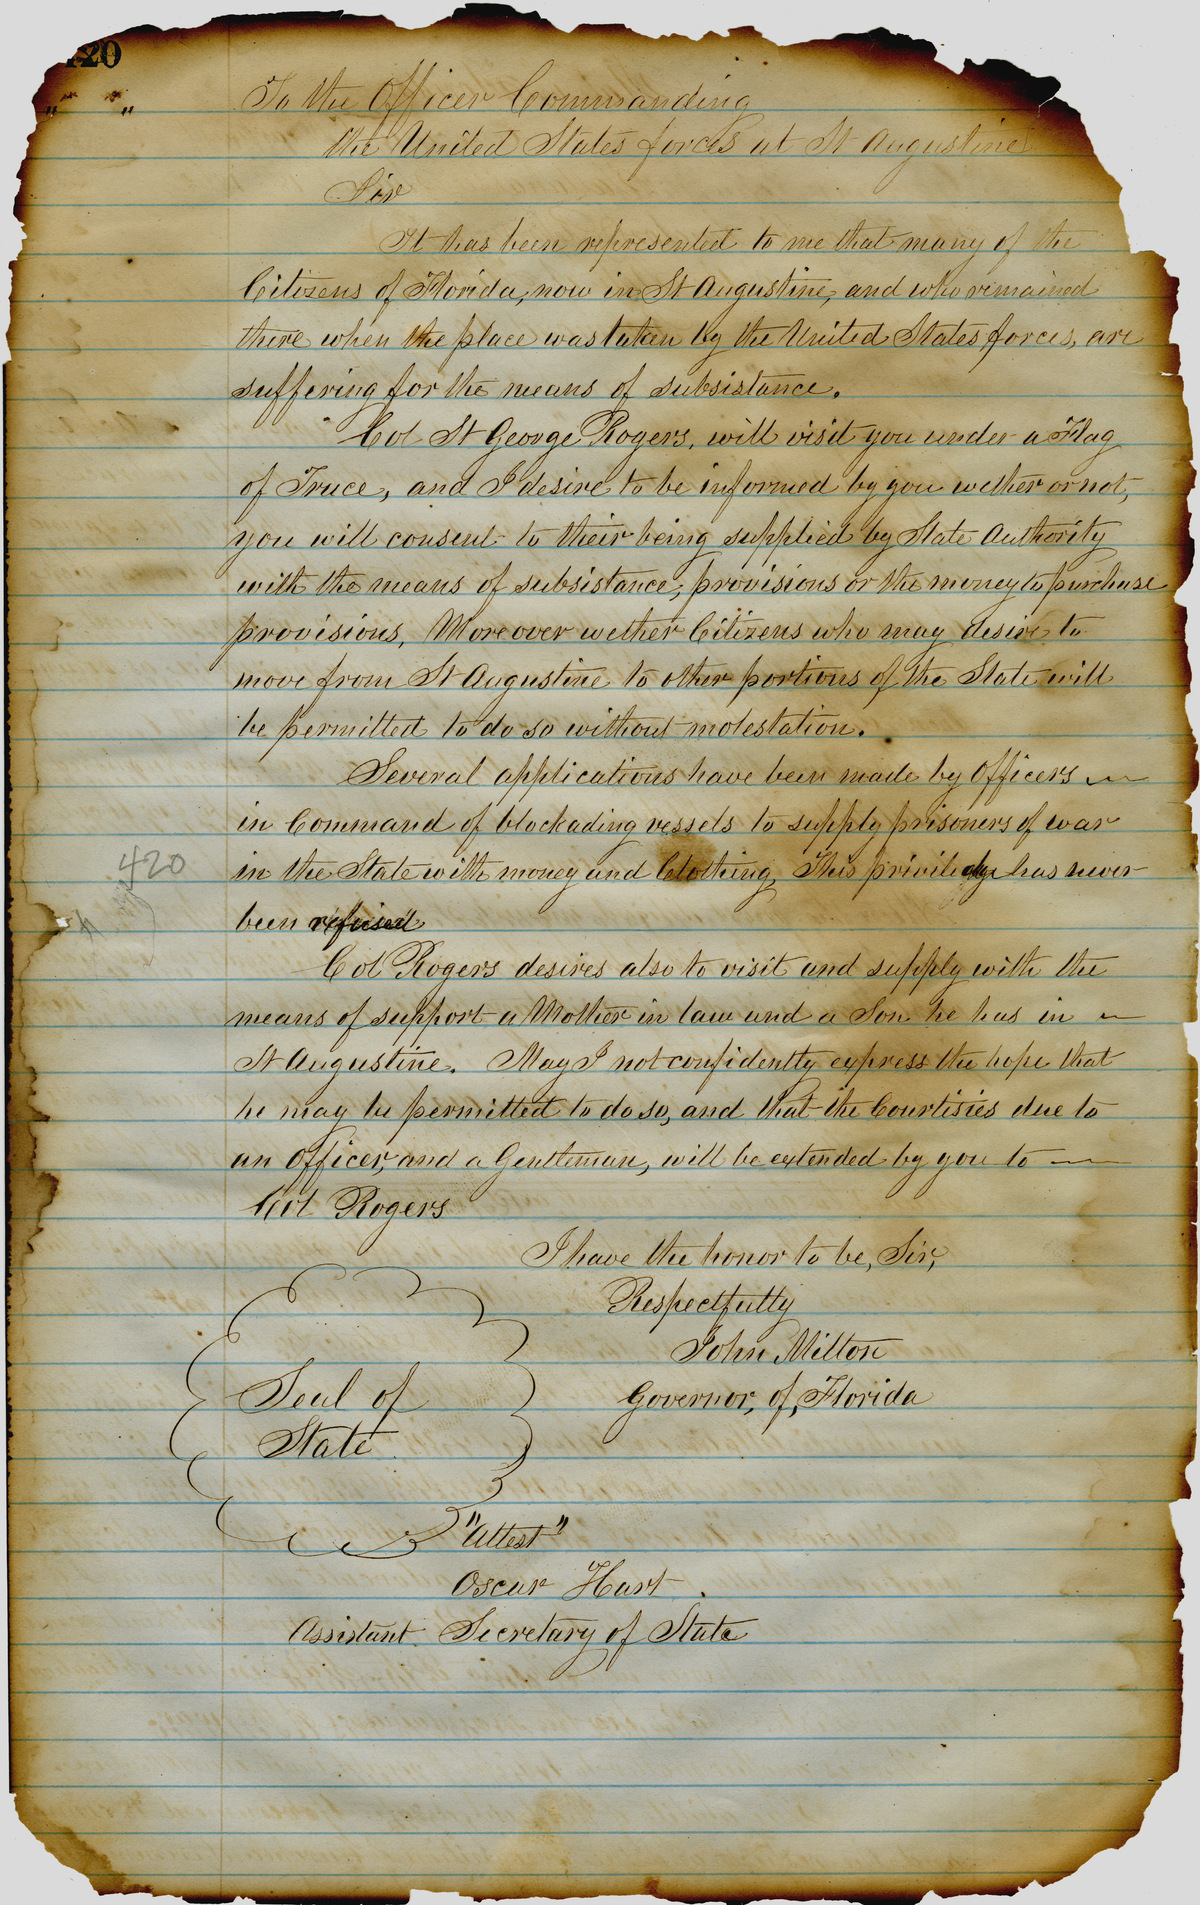 120
" " " "
To the Officer Commanding
the United States forces at St Augustine
Sir
It has been represented to me that many of the
Citizens of Florida, now in St Augustine, and who remained
there when the place was taken by the United States forces, are
suffering for the means of subsistance.
Col St George Rogers, will visit you under a Flag
of Truce, and I desire to be informed by you wether or not,
you will consent to their being supplied by State Authority
with the means of subsistance, provisions or the money to purchase
provisions, Moreover wether Citizens who may desire to
move from St Augustine to other portions of the State will
be permitted to do so without molestation.
Several applications have been made by Officers —
in Command of blockading vessels to supply prisoners of war
in the State with money and Clothing, This priviledge has never
420
been refused
Col Rogers desires also to visit and supply with the
means of support a Mother in law and a Son he has in —
St Augustine. May I not confidently express the hope that
he may be permitted to do so, and that the Courtisies due to
an Officer, and a Gentleman, will be extended by you to —
Col Rogers
I have the honor to be, Sir,
Respectfully
John Milton
Governor, of, Florida
Seal of
State
"Attest"
Oscar Hart.
Assistant Secretary of State